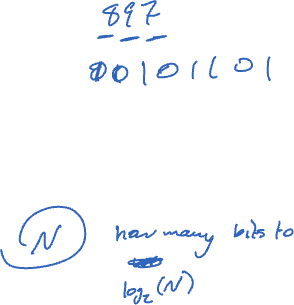 897
00101101
N how many bits to
log₂(N)